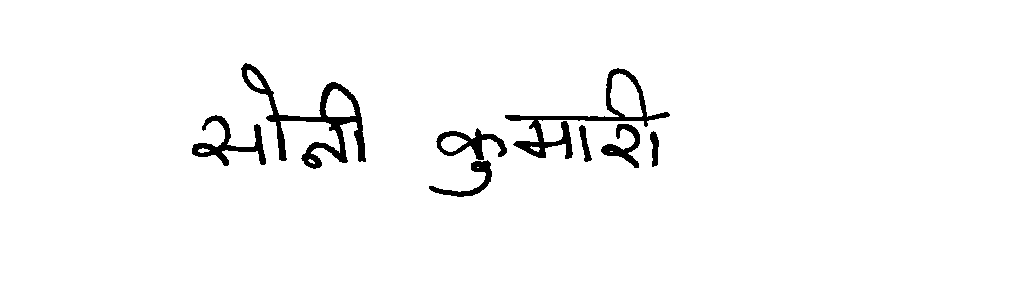 सोनी कुमारी